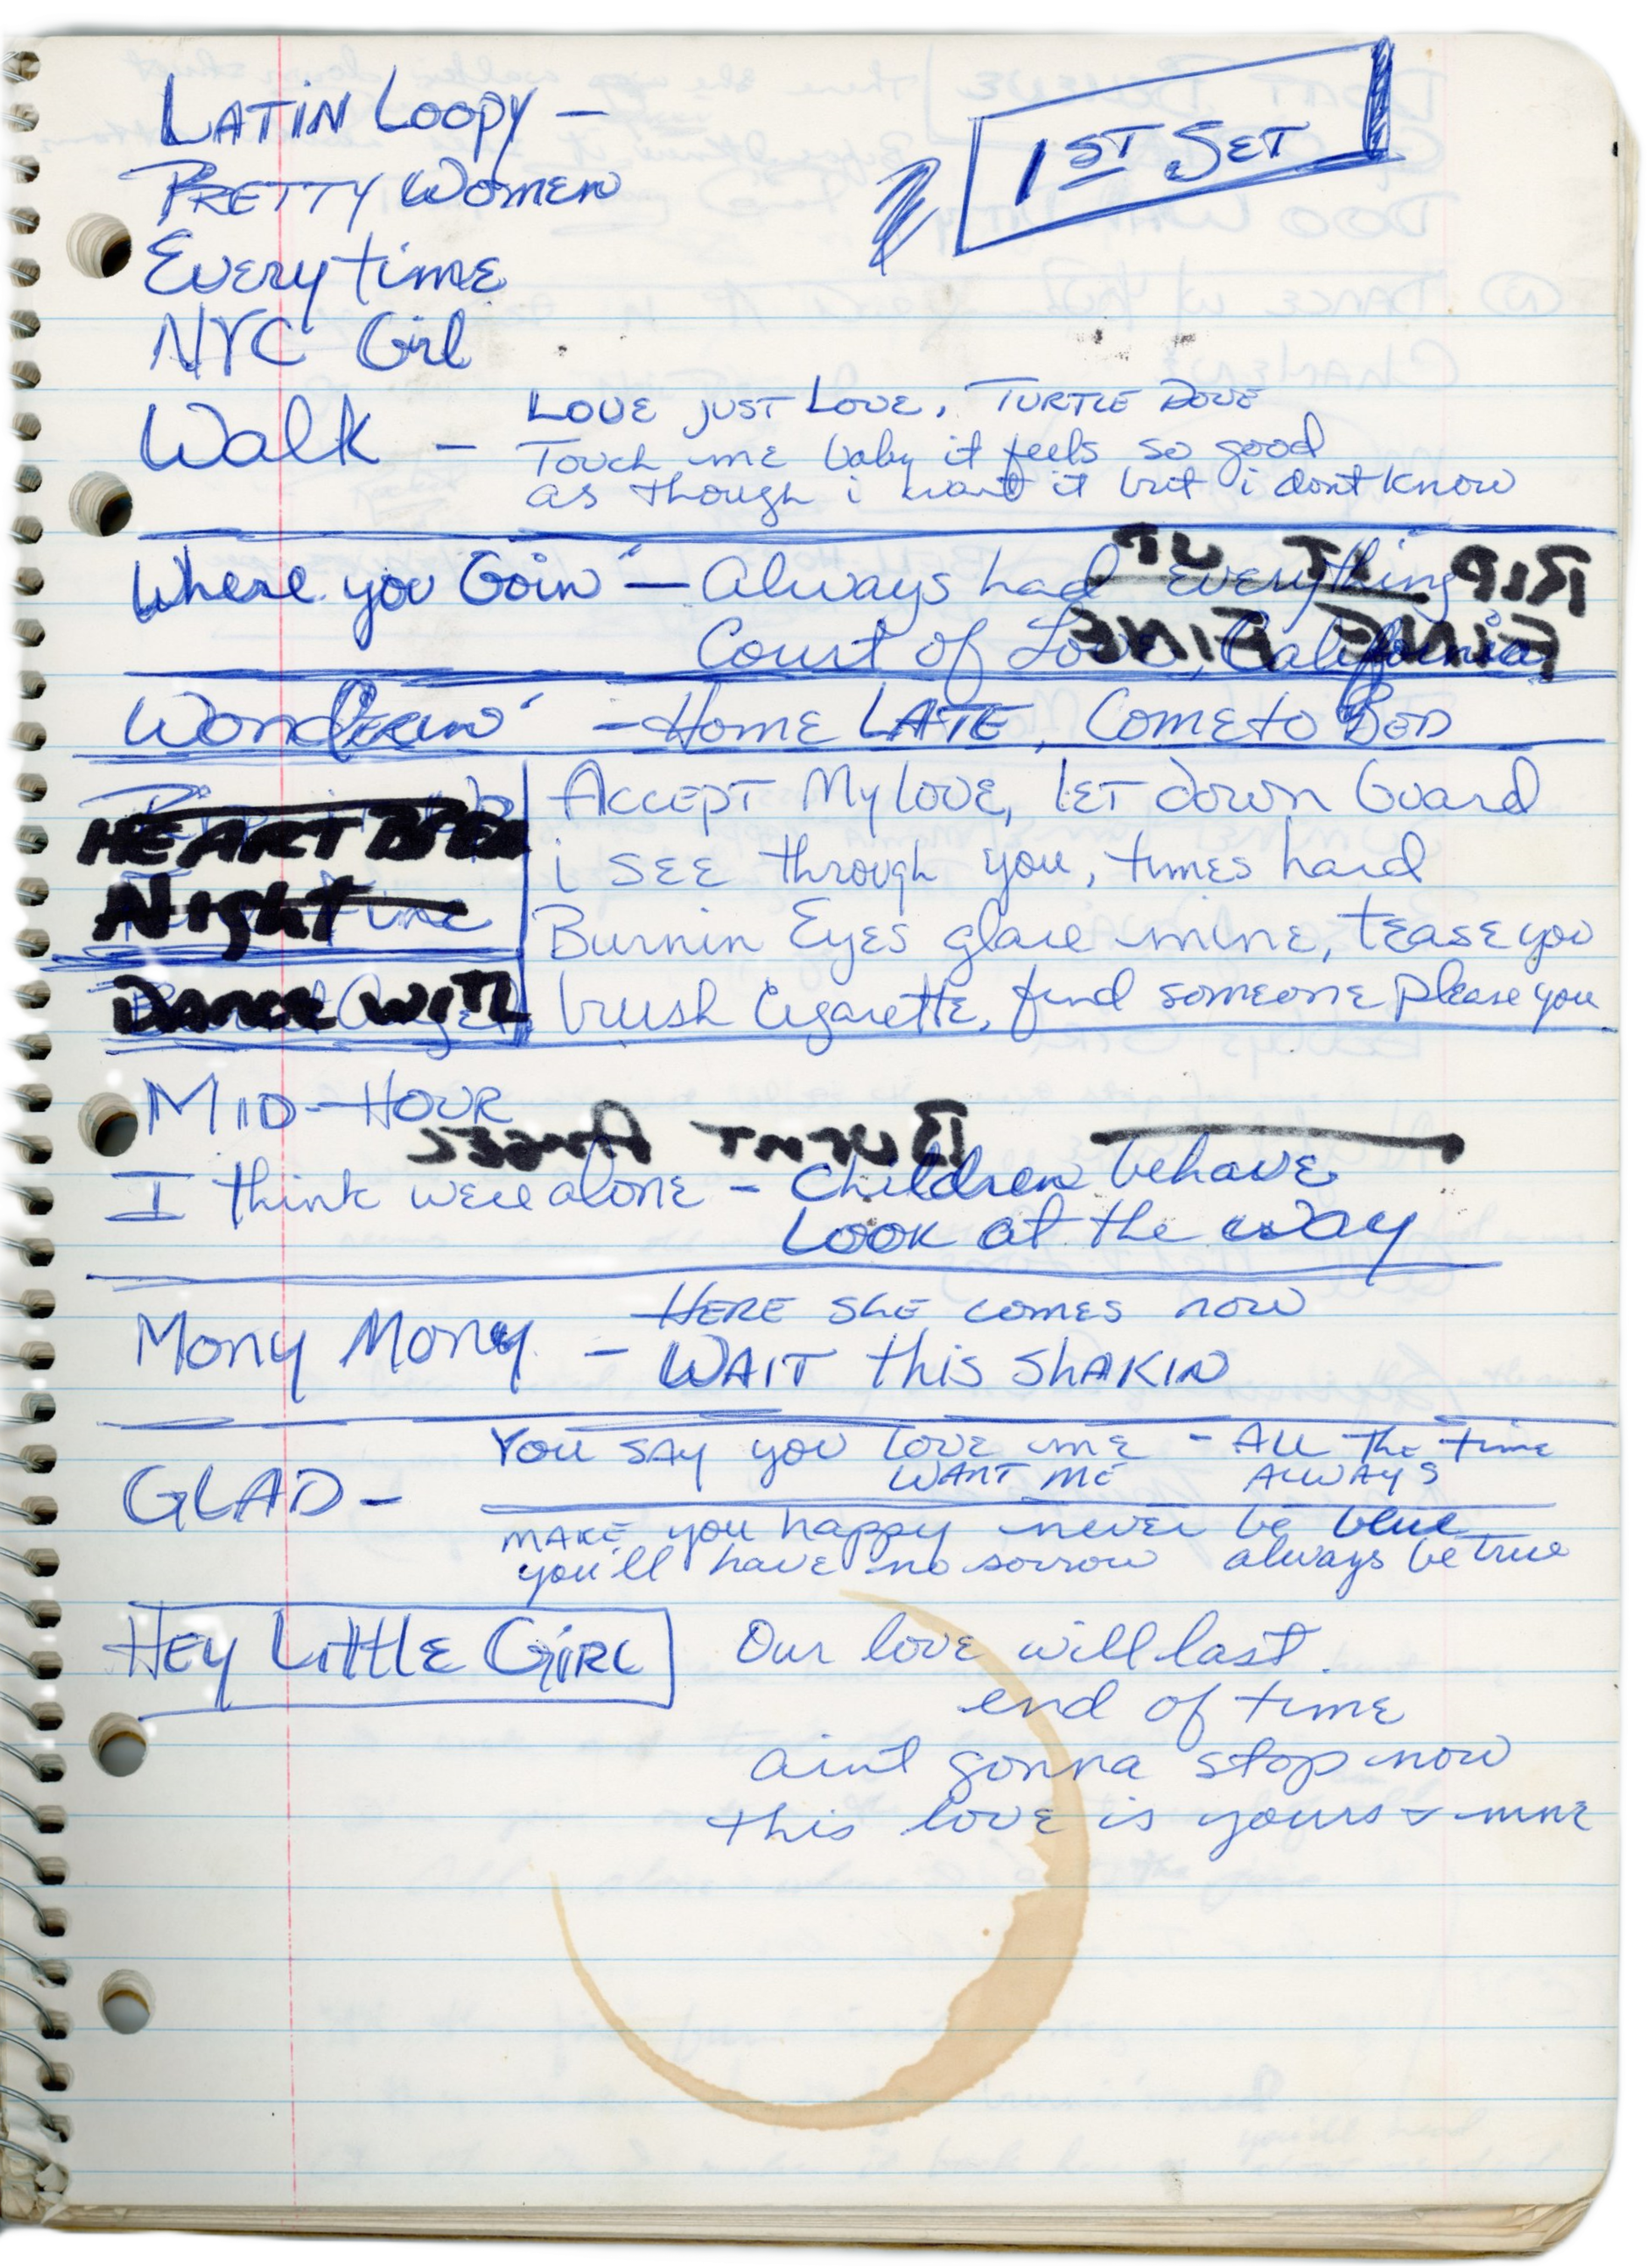 LATIN LOOPY —
1ST SET
PRETTY WOMEN
Everytime
NYC Girl
Walk — LOVE JUST LOVE, TURTLE DOVE
Touch me baby it feels so good
as though i want it but i dont know
Where you Goin' — Always had everything
RIP IT UP
Court of Love, California
FINE FINE
Wonderin' — HOME LATE, COME to BED
ACCEPT My LOVE, LET down Guard
HEART
i SEE through you, times hard
Night
Burnin Eyes glare mine, tease you
DANCE WITH
brush Cigarette, find someone please you
MID-HOUR
BURNT ANGEL
I think were alone — Children behave
Look at the way
Mony Mony — HERE SHE comes now
WAIT this SHAKIN
You SAY you love me — ALL The time
WANT ME ALWAYS
GLAD —
MAKE you happy never be blue
you'll have no sorrow always be true
HEY LittlE GiRL Our love will last
end of time
aint gonna stop now
this love is yours & mine